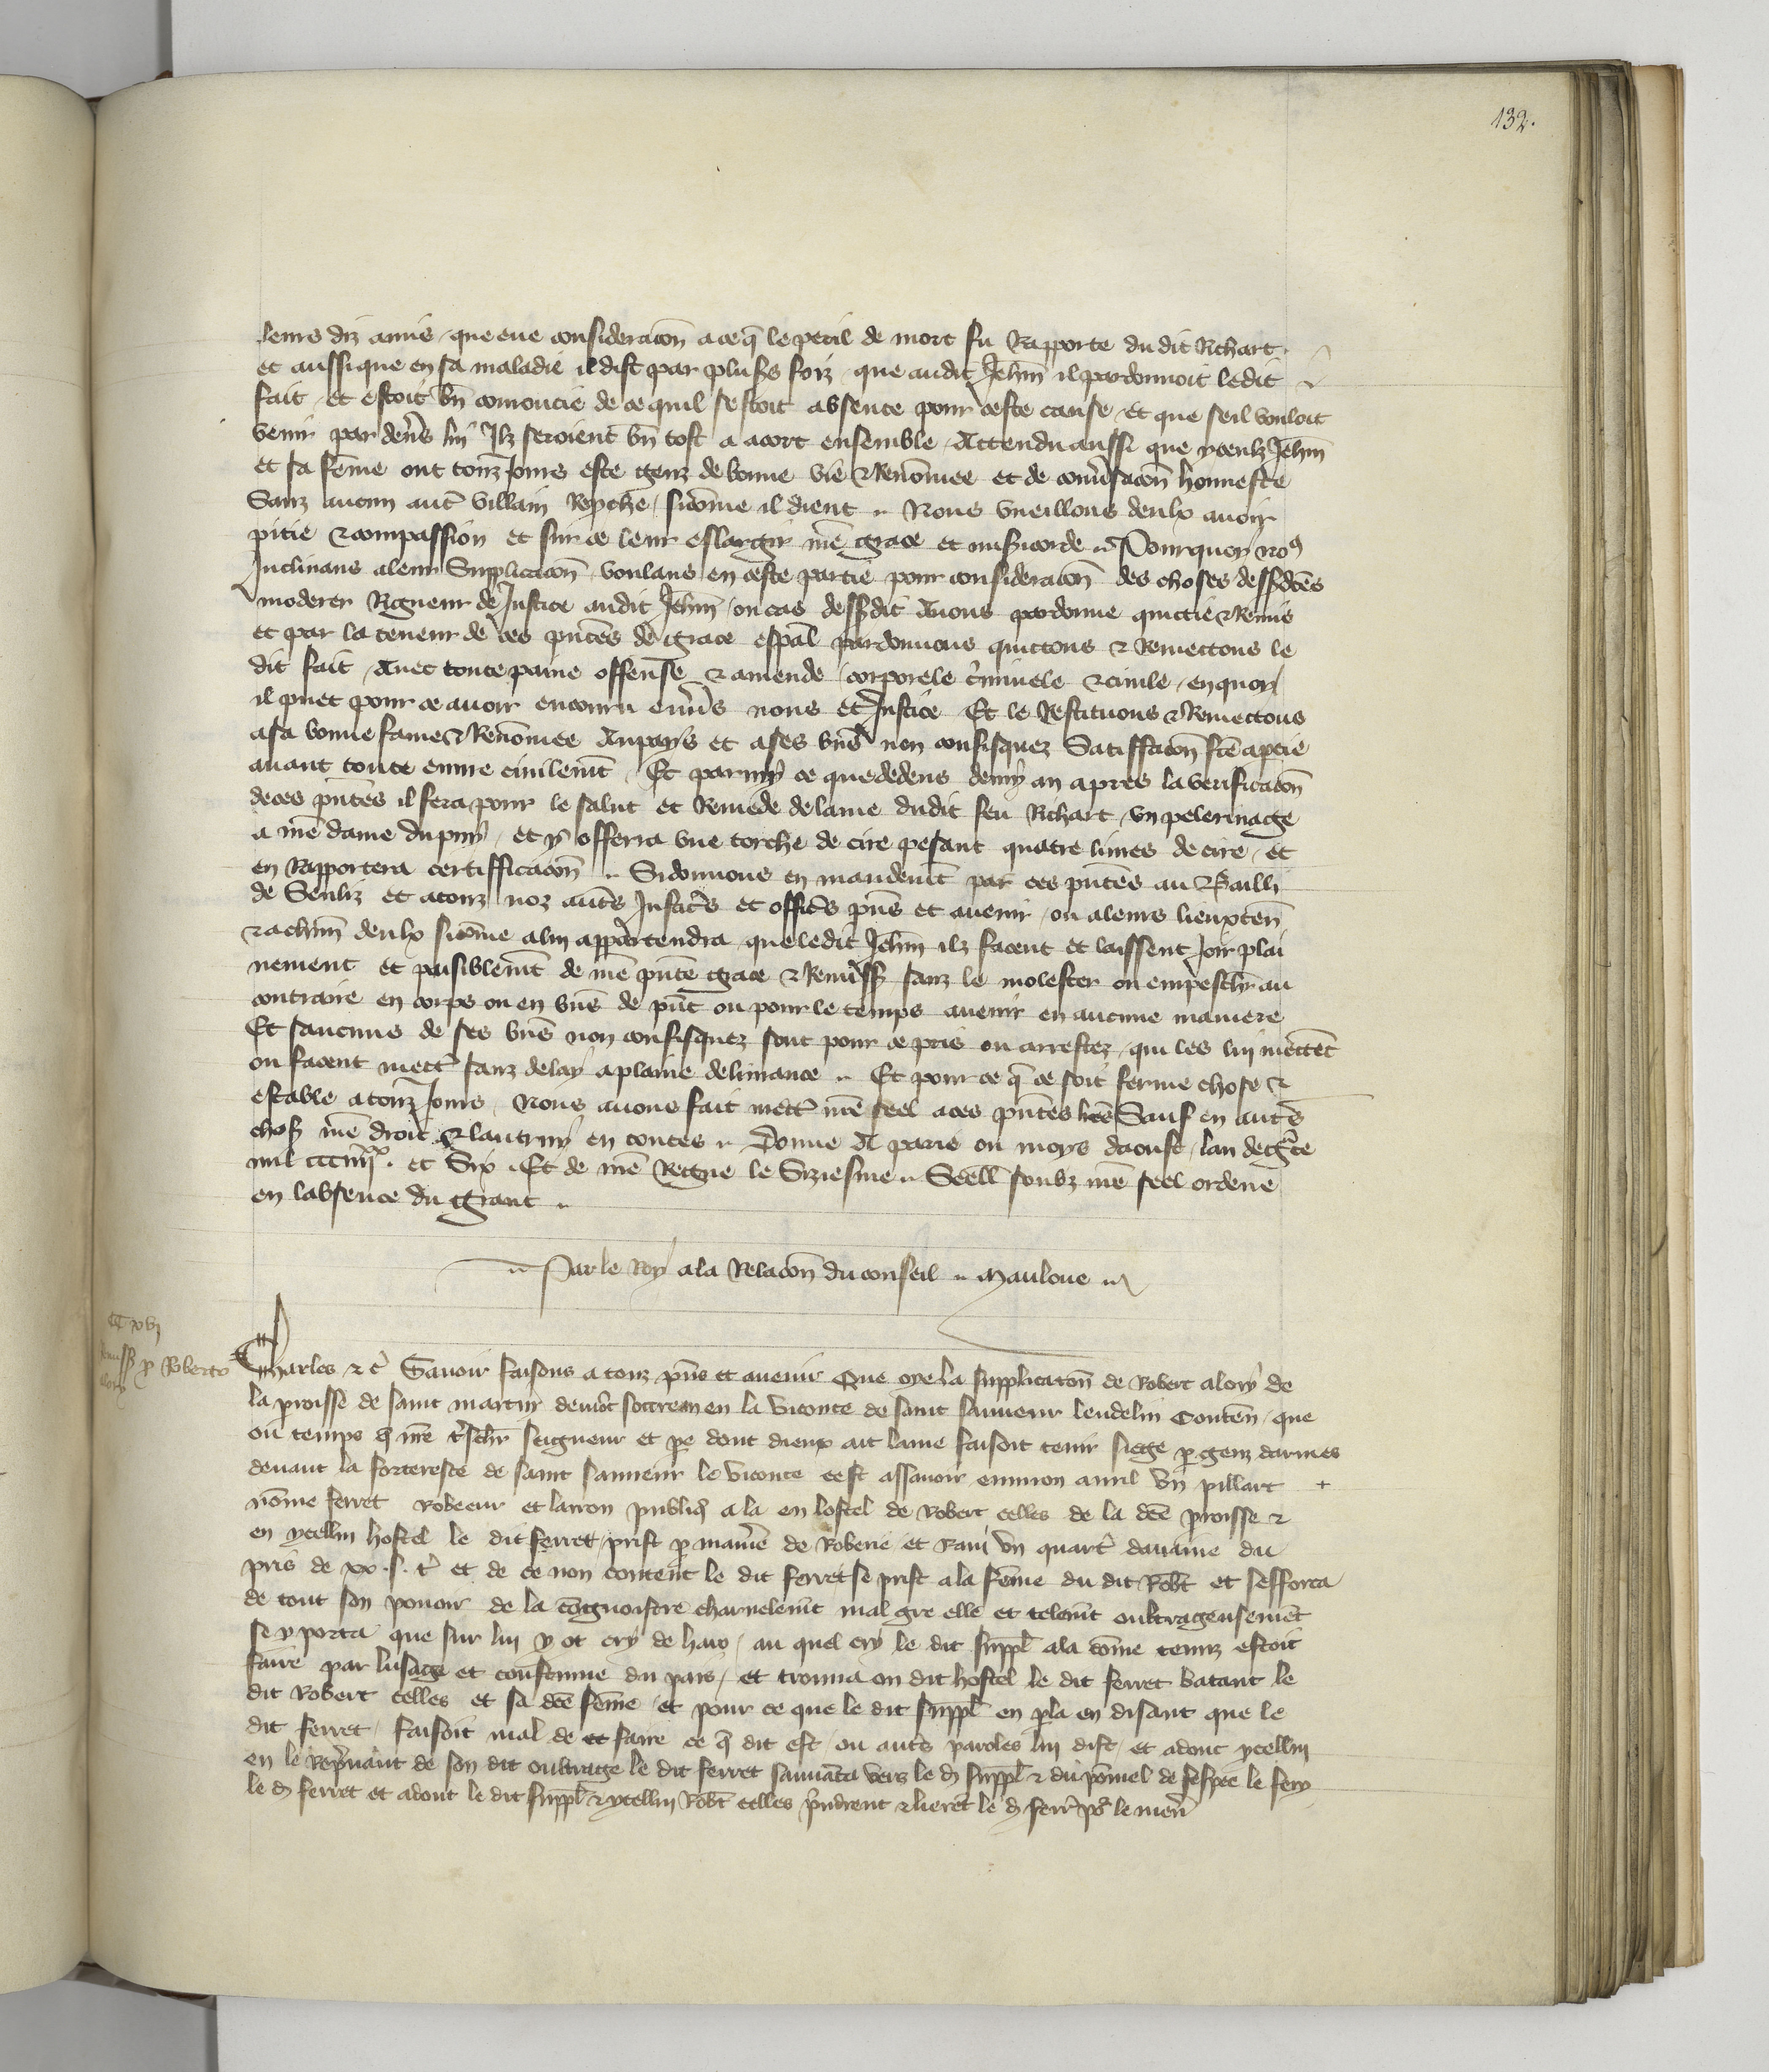 132.
leurs diz amis, que eue consideracōn a ce q̄ le peril de mort fu Rapporte du dit Richart.
et aussi que en sa maladie il dist par plusrs foiz, que audit Jehn̄ il pardonnoit ledit
fait, et estoit bn̄ comoucie de ce quil sestoit absente pour ceste cause, Et que seil vouloit
venir par devs lui Ilz seroient bn̄ tost a acort ensemble, Attendu aussi que yceulx Jehn̄
et sa fēme ont touz Jours este genz de bonne vie & Renōmee et de conv̄sacōn honneste
Sanz aucun aut̄ villain Reproche, sicōme il dient .. Nous vueillons deulx avoir
pitie & compassion et sur ce leur eslargir nr̄e grace et mis̄icorde .. Pourquoy noꝯ
Inclinans a leur Supplicacōn, voulans en ceste partie pour consideracōn des choses dessꝰdcēs
moderer Rigueur de Justice audit Jehn̄, ou cas dessꝰdit Avons pardonne quictie & Remis
et par la teneur de ces pn̄tes de grace esp̄al pardonnons quictons & Remectons le
dit fait, Avec toute paine offense & amende, corporele c̄minele & civile, en quoy
il puet pour ce avoir encouru env̄s nous et Justice Et le Restituons & Remectons
a sa bonne fame & Renōmee Au pays et a ses bn̄s non confisquez Satisfacōn fcē a p̄tie
avant toute euvre civilem̄t, Et parmy ce que dedens demy an apres la verificacōn
de ces pn̄tes il fera pour le salut et Remede de lame dudit feu Richart, un pelerinage
a nr̄e dame du puy, et y offerra une torche de cire pesant quatre livres de cire, et
en Rapportera certifficacōn .. Si donnons en mandem̄t par ces pn̄tes au Bailli
de Senliz et a touz noz aut̄s Justic̄s et offic̄s pn̄s et avenir, ou a leurs lieuxten̄
& a chn̄ deulx sicōme a lui appartendra, que ledit Jehn̄ ilz facent et laissent Joir plai
nement et paisiblem̄t de nr̄e pn̄te grace & Remiss̄ sanz le molester ou empeschr̄ au
contraire en corps ou en bn̄s de pn̄t ou pour le temps avenir en aucune maniere
Et saucuns de ses bn̄s non confisquez sont pour ce pris ou arrestez, qui les lui mettēt
ou facent mett̄ sanz delay a plaine delivrance .. Et pour ce q̄ ce soit ferme chose &
estable a touz Jours, Nous avons fait mett̄ nr̄e seel a ces pn̄tes lr̄es Sauf en aut̄s
chos̄ nr̄e droit & lautruy en toutes .. Donne A paris ou moys daoust, lan de gr̄ce
mil ccciiiixx. et Six. Et de nr̄e Regne le Siziesme .. Seell̄ soubz nr̄e seel ordene
en labsence du grant ..
.. Par le Roy a la Relacōn du conseil .. Mauloue ..
CC xvi
Remiss̄ p̄ Roberto
alory
Charles & c̄ Savoir faisons a touz pn̄s et avenir Que oye la supplicatōn de Robert alory de
la p̄oisse de saint martin en la viconte de saint sauveur lendelin Conten̄, que
ou temps q̄ nr̄e t̄schr̄ seigneur et p̄e dont dieux ait lame faisoit tenir siege p̄ genz darmes
devant la forteresce de saint sauveur le viconte cest assavoir environ avril un pillart +
nōme ferret Robeeur et larron publiq̄ ala en lostel de Robert celles de la dcē p̄oisse &
en ycellui hostel le dit ferret, prist p̄ manīe de Roberie et Ravi un quart̄ davaine du
pris de xx. s. t̄ et de ce non content le dit ferret se prist a la fēme du dit Rob̄t et sefforca
de tout son povoir de la cōgnoistre charnelem̄t mal gre elle et telem̄t oultrageusemēt
se y porta que sur lui y ot cry de haro, au quel cry le dit suppl̄ ala cōme tenuz estoit
faire par lusage et coustume du pais, et trouva on dit hostel le dit ferret batant le
dit Robert celles et sa dcē fēme, et pour ce que le dit suppl̄ en p̄la en disant que le
dit ferret, faisoit mal de ce faire ce q̄ dit est, ou aut̄s paroles lui dist, et adonc ycellui
en le Rep̄nant de son dit oultrage le dit ferret savancā vers le d̄ suppl̄ & du pōmel de sespee le fery
le d̄ ferret et adont le dit suppl̄ & ycellui Rob̄t celles p̄ndrent & lierēt le d̄ ferr̄ po᷑ le men̄